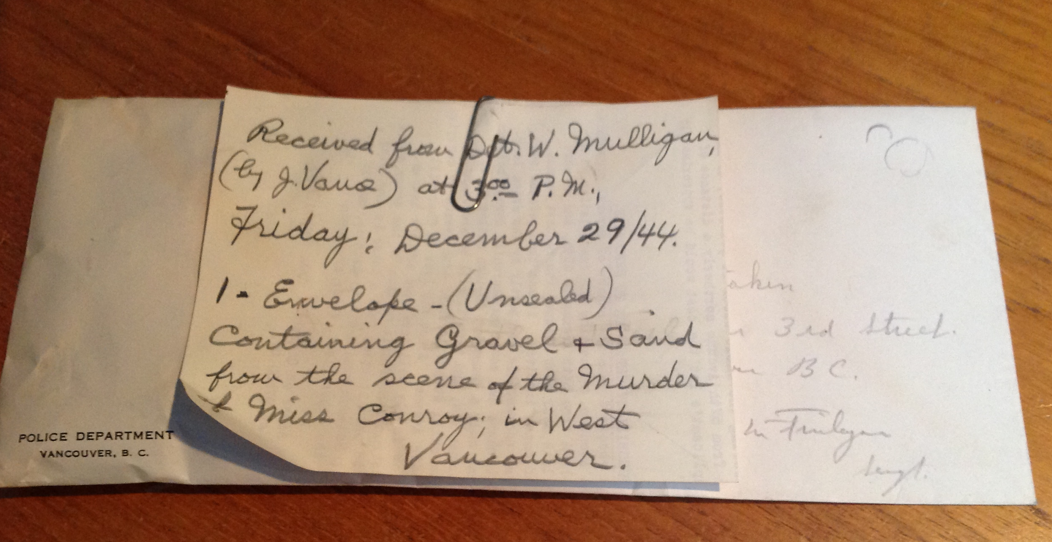 Received from Det. W. Mulligan,
(by J. Vance) at 3.00 P.M.,
Friday; December 29/44.
1 - Envelope - (Unsealed)
Containing Gravel & Sand
from the scene of the Murder
of Miss Conroy; in West
Vancouver.
POLICE DEPARTMENT
VANCOUVER, B. C.
3rd Street.
B C.
Sergt.